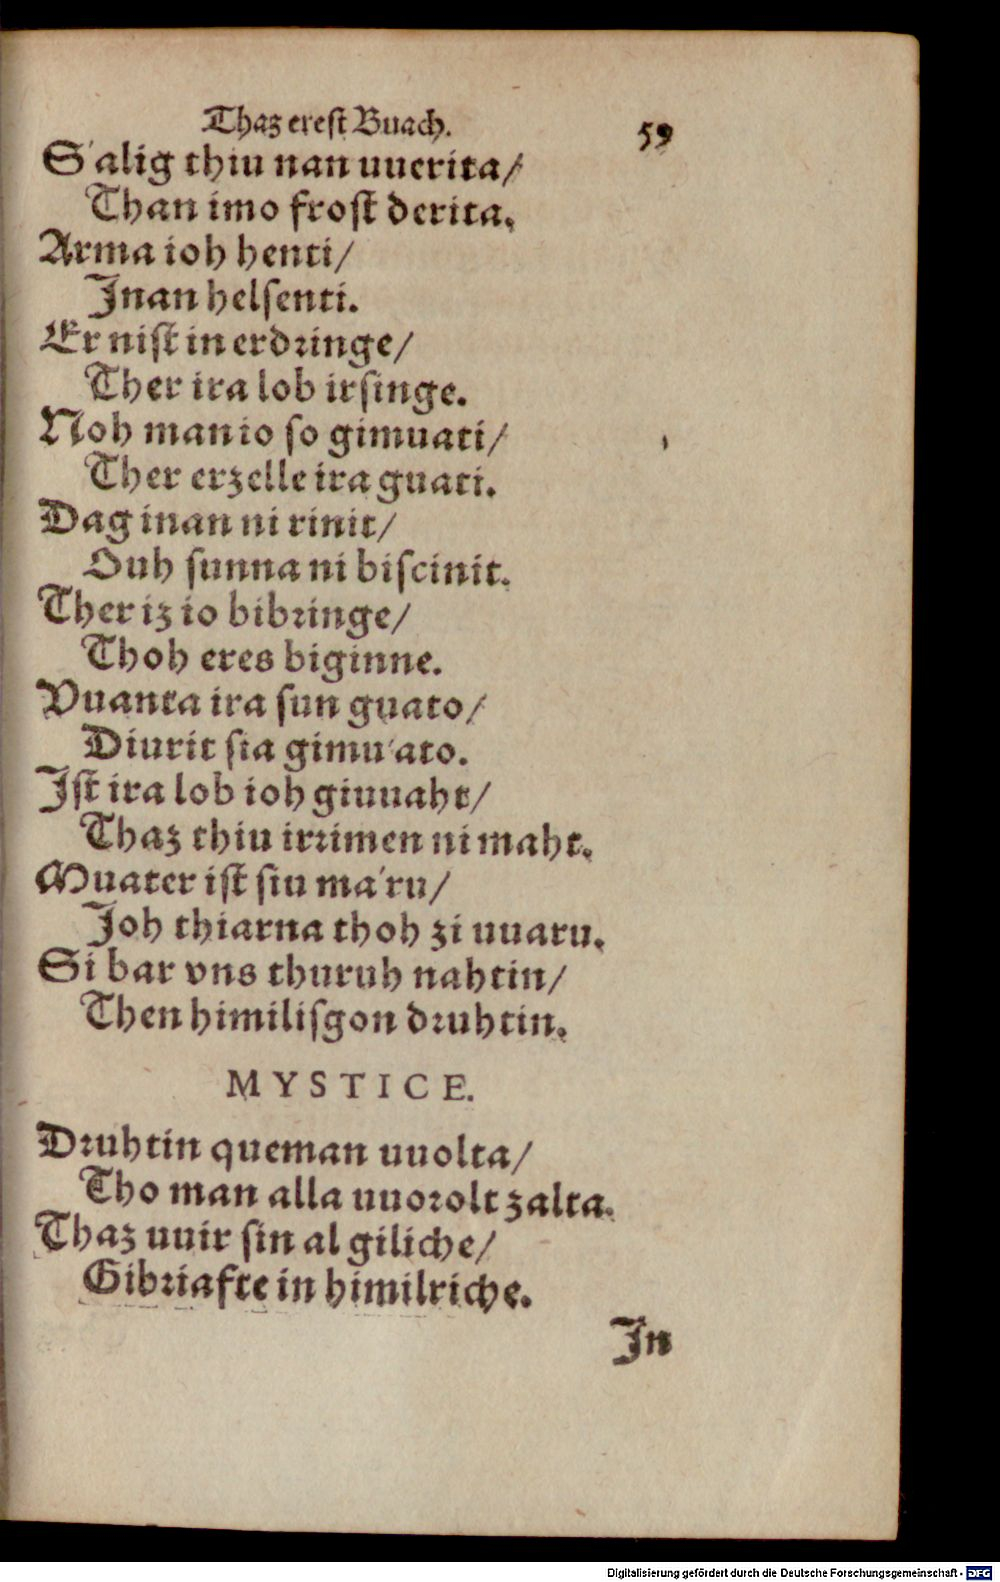 Thaz erest Buach. 59
S'alig thiu nan uuerita/
Than imo frost derita.
Arma ioh henti/
Jnan helsenti.
Er nist in erdringe/
Ther ira lob irsinge.
Noh man io so gimuati/
Ther erzelle ira guati.
Dag inan ni rinit/
Ouh sunna ni biscinit.
Ther iz io bibringe/
Thoh eres biginne.
Vuanta ira sun guato/
Diurit sia gimu'ato.
Jst ira lob ioh giuuaht/
Thaz thiu irrimen ni maht.
Muater ist siu ma'ru/
Joh thiarna thoh zi uuaru.
Si bar vns thuruh nahtin/
Then himilisgon druhtin.
MYSTICE.
Druhtin queman uuolta/
Tho man alla uuorolt zalta.
Thaz uuir sin al giliche/
Gibriafte in himilriche.
Jn
Digitalisierung gefördert durch die Deutsche Forschungsgemeinschaft - DFG